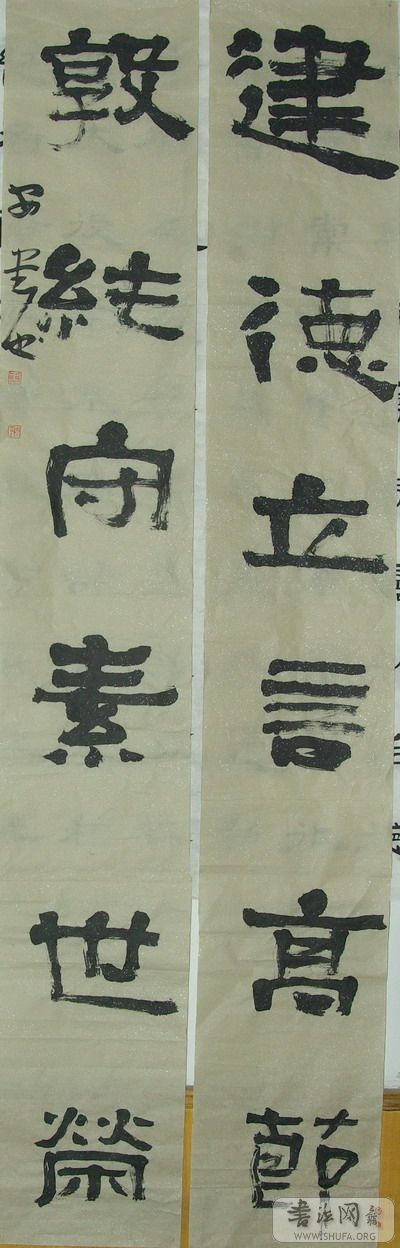 建德立言高節
敦純守素世榮
書法网
WWW.SHUFA.ORG